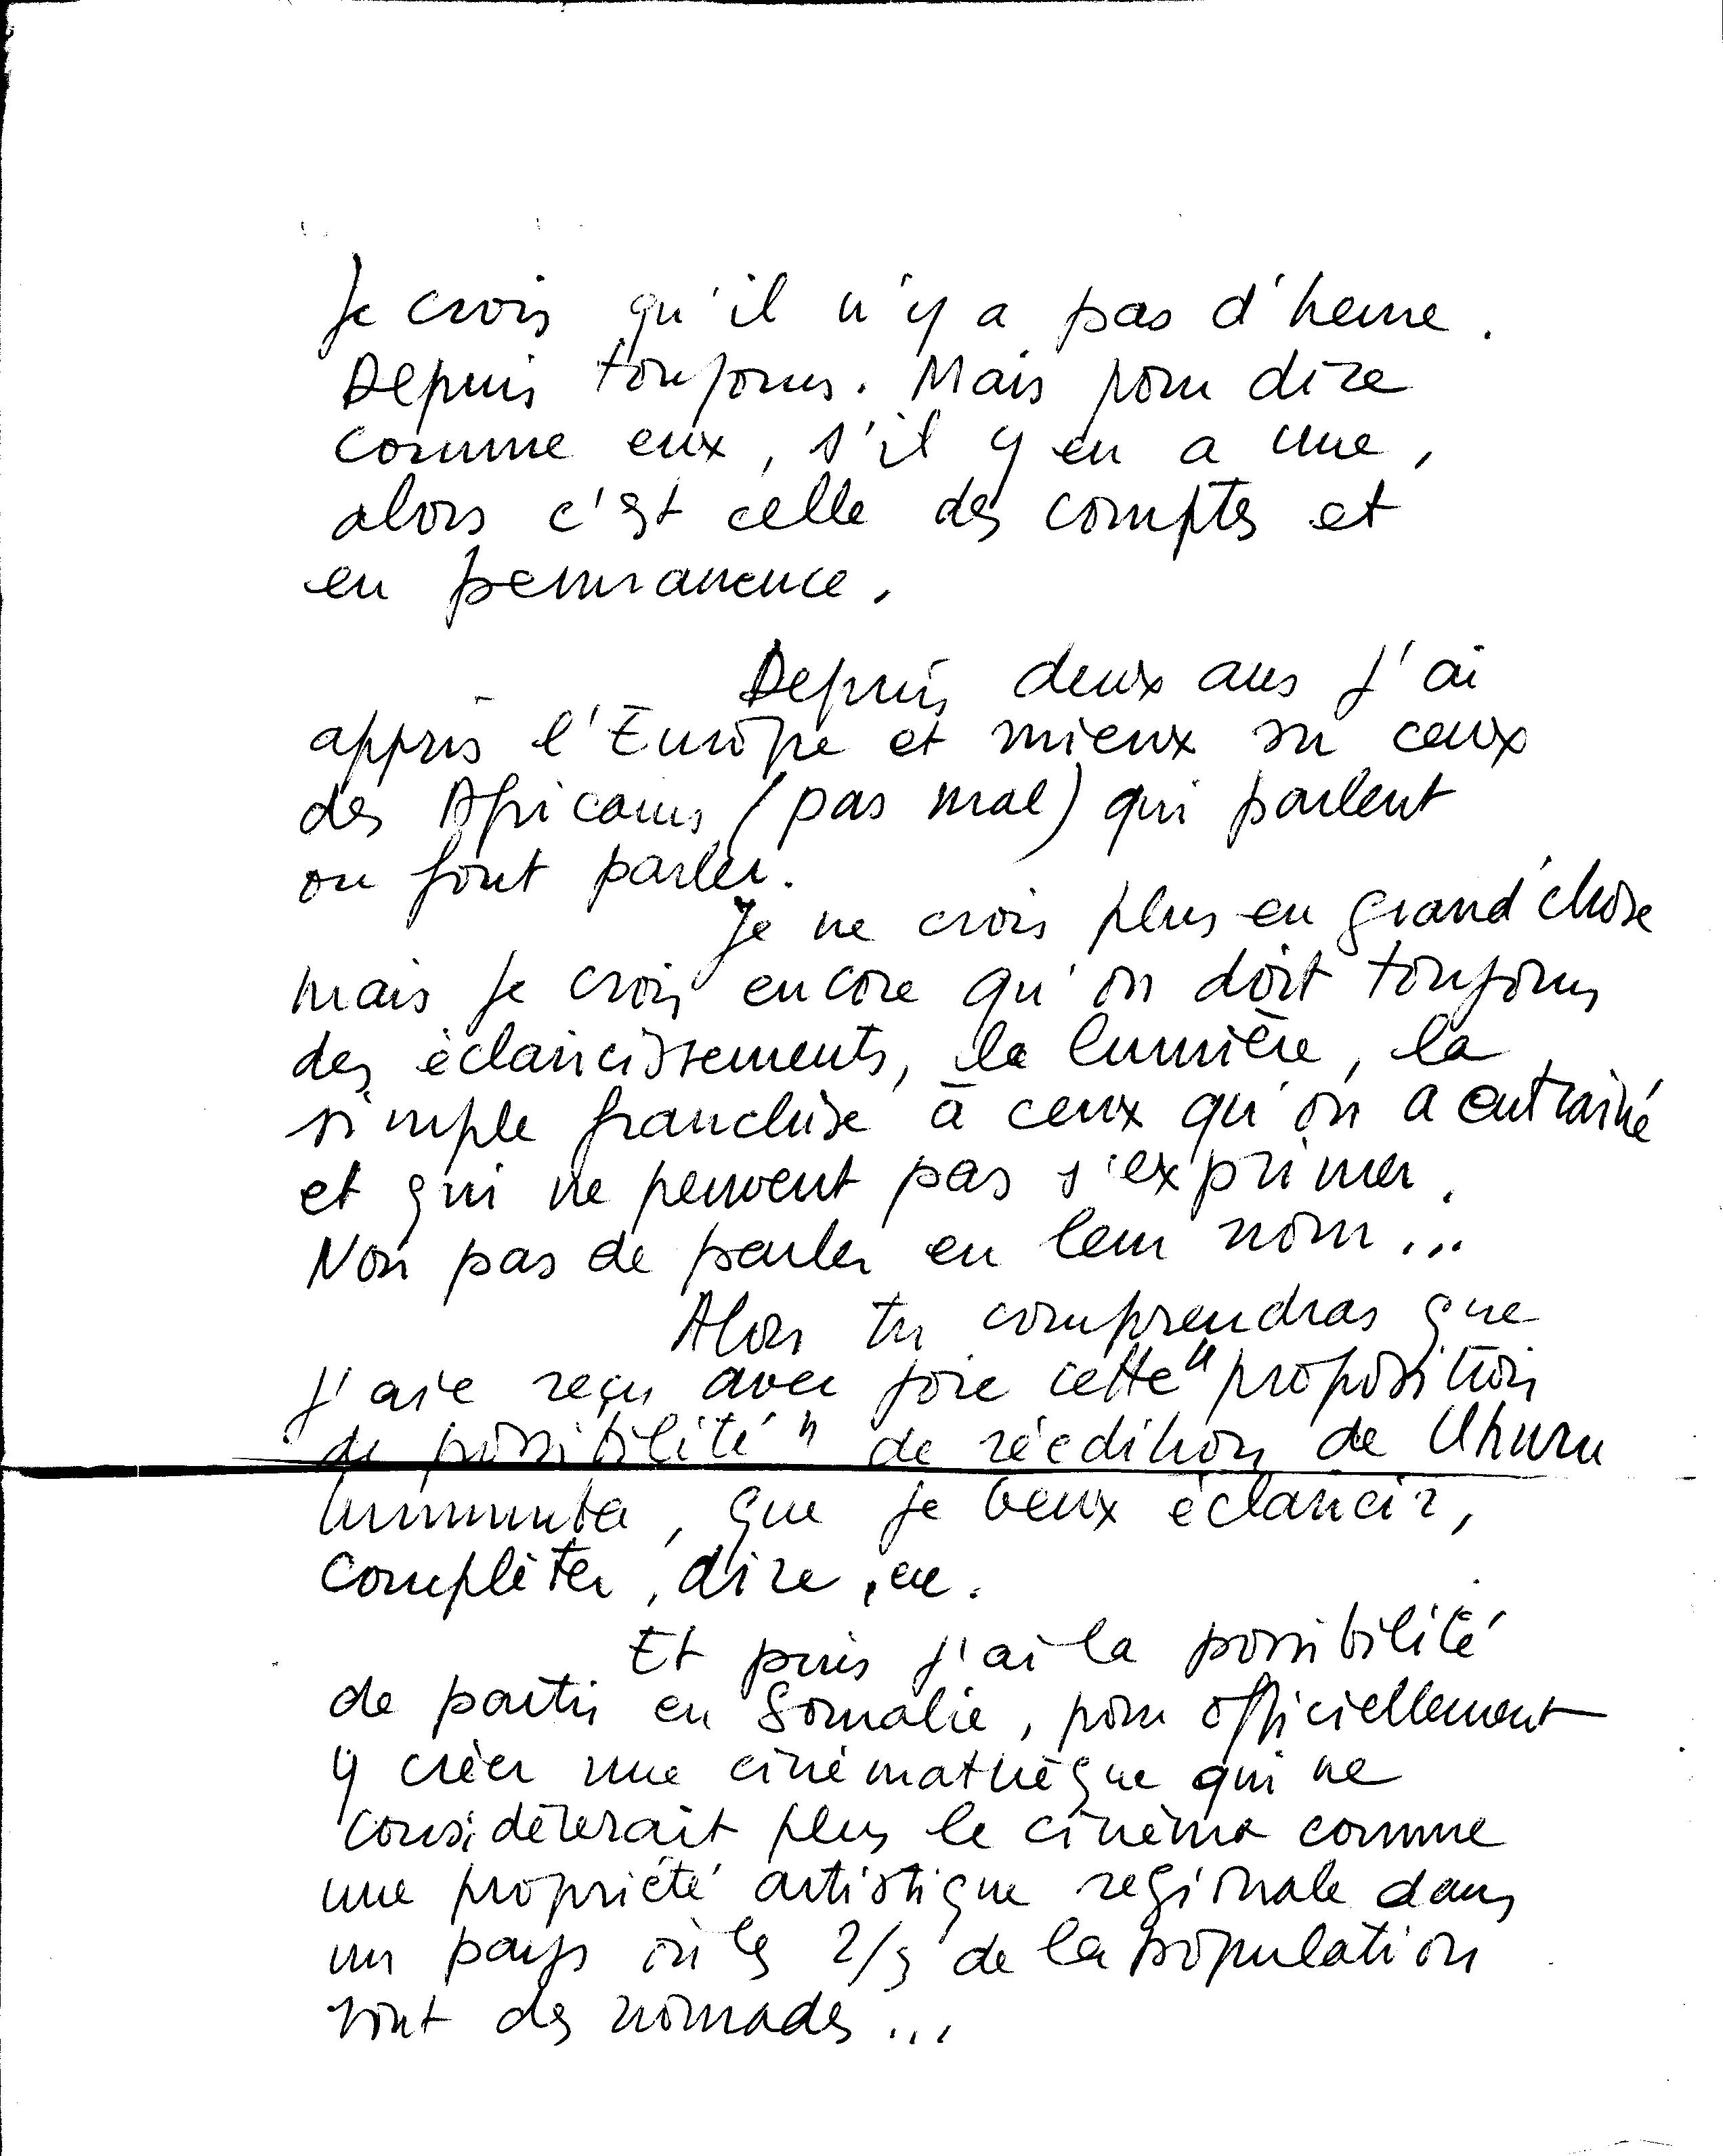 Je crois qu'il n'y a pas d'heure.
Depuis toujours. Mais pour dire
comme eux, s'il y en a une,
alors c'est celle des comptes et
en permanence.
Depuis deux ans j'ai
appris l'Europe et mieux su ceux
des Africains (pas mal) qui parlent
ou font parler.
Je ne crois plus en grand'chose
mais je crois encore qu'on doit toujours
des éclaircissements, la lumière, la
simple franchise à ceux qu'on a entrainé
et qui ne peuvent pas s'exprimer.
Non pas de parler en leur nom...
Alors tu comprendras que
j'aie reçu avec joie cette "proposition
de possibilité" de réedition de Uhuru
lumumba, que je veux éclaircir,
complèter, dire,
Et puis j'ai la possibilité
de partir en Somalie, pour officiellement
y créer une cinémathèque qui ne
considèrerait plus le cinèma comme
une propriété artistique regionale dans
un pays où les 2/3 de la population
sont des nomades...